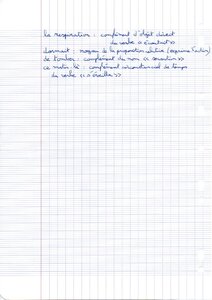 la respiration : complément d'objet direct
du verbe « écoutait »
dormant : noyau de la proposition relative
de tomber : complément du nom « sensation »
ce matin là : complément circonstanciel de temps
du verbe « s'éveilla »